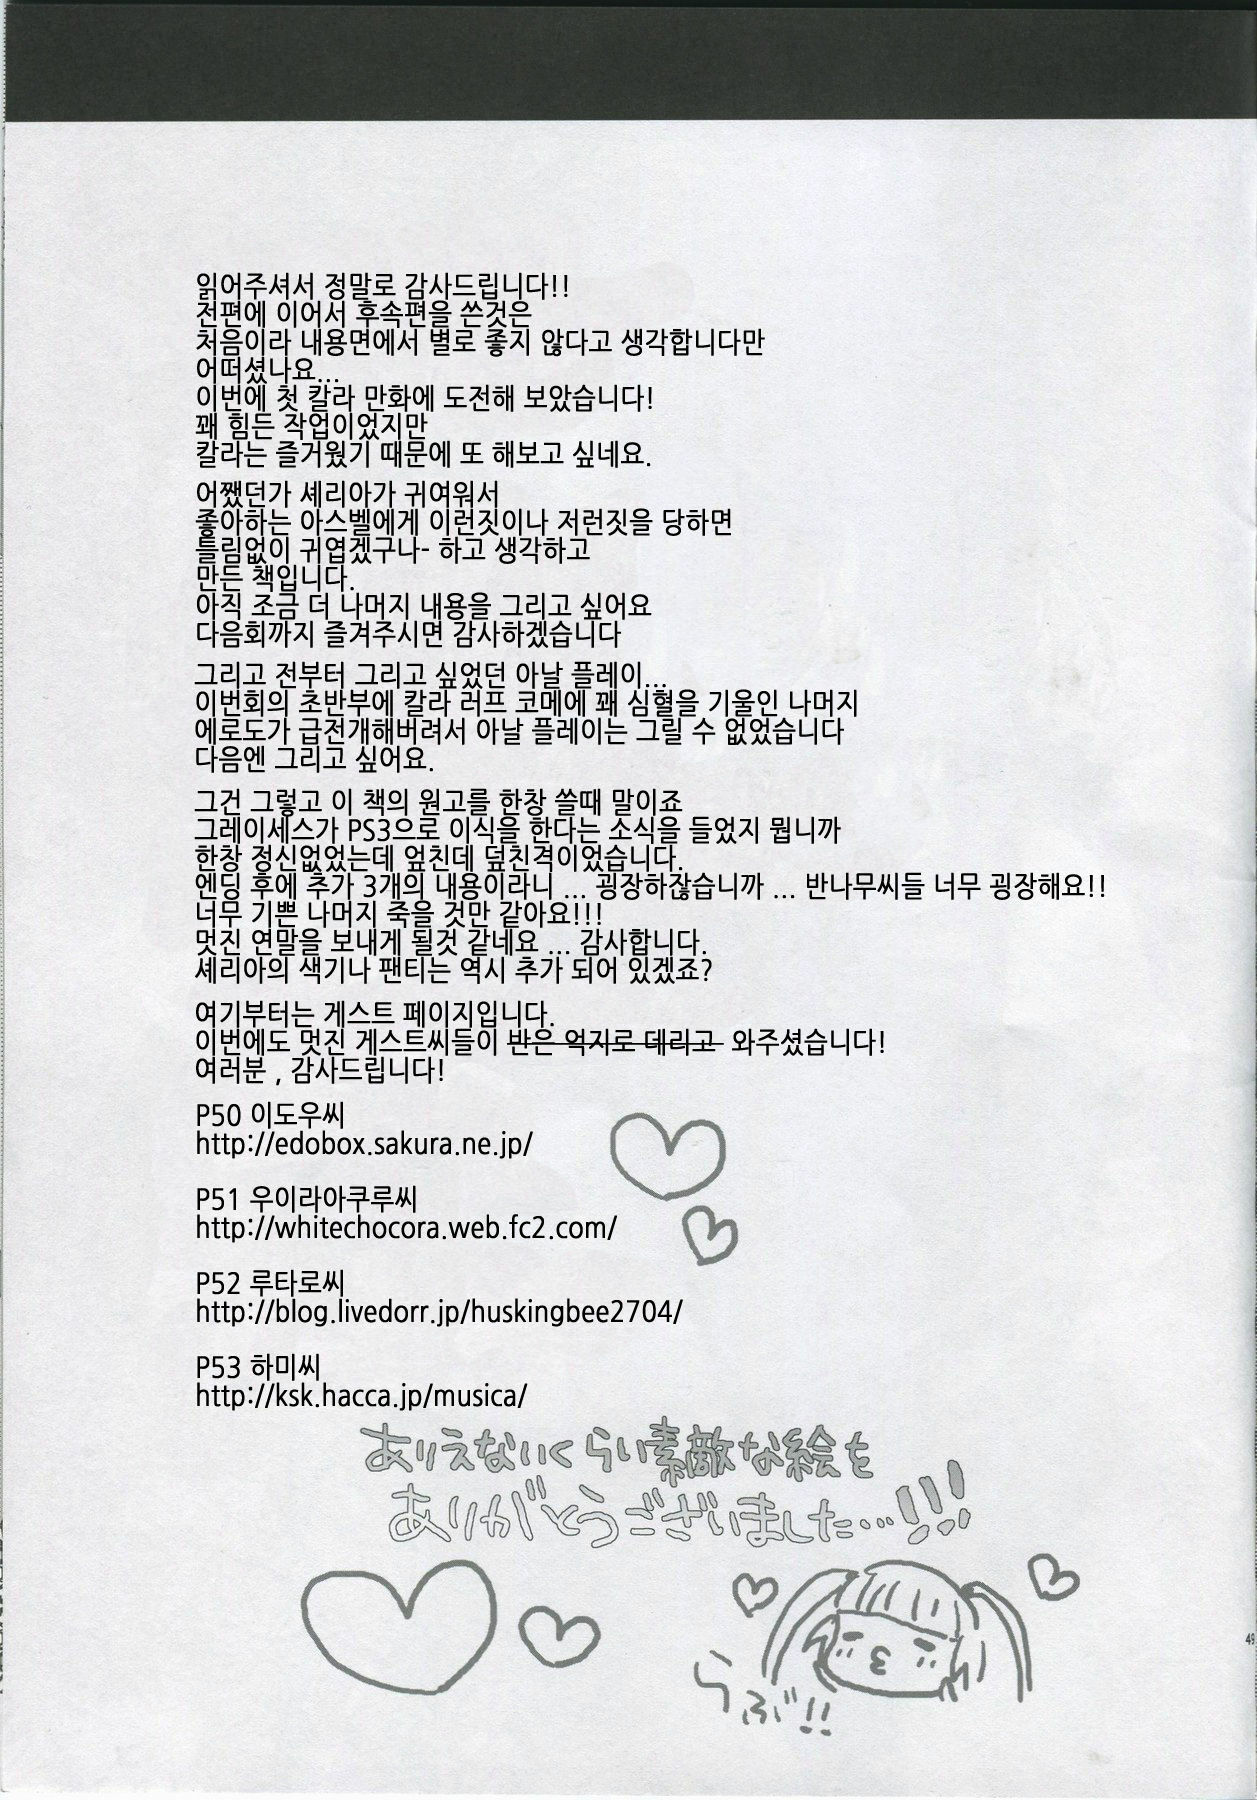 읽어주셔서 정말로 감사드립니다!!
전편에 이어서 후속편을 쓴것은
처음이라 내용면에서 별로 좋지 않다고 생각합니다만
어떠셨나요...
이번에 첫 칼라 만화에 도전해 보았습니다!
꽤 힘든 작업이었지만
칼라는 즐거웠기 때문에 또 해보고 싶네요.
어쨌던가 셰리아가 귀여워서
좋아하는 아스벨에게 이런짓이나 저런짓을 당하면
틀림없이 귀엽겠구나- 하고 생각하고
만든 책입니다.
아직 조금 더 나머지 내용을 그리고 싶어요
다음회까지 즐겨주시면 감사하겠습니다
그리고 전부터 그리고 싶었던 아날 플레이...
이번회의 초반부에 칼라 러프 코메에 꽤 심혈을 기울인 나머지
에로도가 급전개해버려서 아날 플레이는 그릴 수 없었습니다
다음엔 그리고 싶어요.
그건 그렇고 이 책의 원고를 한창 쓸때 말이죠
그레이세스가 PS3으로 이식을 한다는 소식을 들었지 뭡니까
한창 정신없었는데 엎친데 덮친격이었습니다.
엔딩 후에 추가 3개의 내용이라니 ... 굉장하잖습니까 ... 반나무씨들 너무 굉장해요!!
너무 기쁜 나머지 죽을 것만 같아요!!!
멋진 연말을 보내게 될것 같네요 ... 감사합니다.
셰리아의 색기나 팬티는 역시 추가 되어 있겠죠?
여기부터는 게스트 페이지입니다.
이번에도 멋진 게스트씨들이 반은 억지로 데리고 와주셨습니다!
여러분 , 감사드립니다!
P50 이도우씨
http://edobox.sakura.ne.jp/
P51 우이라아쿠루씨
http://whitechocora.web.fc2.com/
P52 루타로씨
http://blog.livedorr.jp/huskingbee2704/
P53 하미씨
http://ksk.hacca.jp/musica/
ありえないくらい素敵な絵を
ありがとうございました…!!!
らぶ!!
49